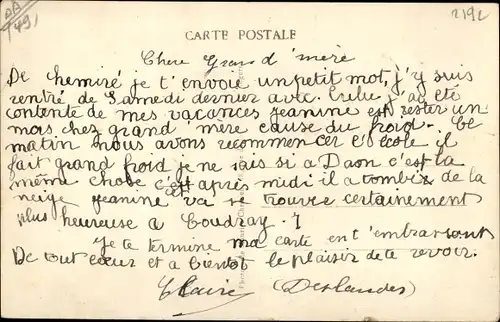 AA
491
2192
CARTE POSTALE
Chere Grand'mère
De hemiré je t'envoie un petit mot, j'y suis
rentré de Samedi dernier avec. ai eté
contente de mes vacances jeanine est rester un
mois chez grand'mère cause du froid. Ce
matin nous avons recommencer l'école il
fait grand froid je ne sais si a Daon c'est la
même chose c'est après midi il a tombix de la
neige jeanine va se trouve certainement
plus heureuse a Coudray. 7
Je te termine ma carte en t'embrassant
De tout cœur et a bientôt le plaisir de te revoir.
Claire (Deslandes)